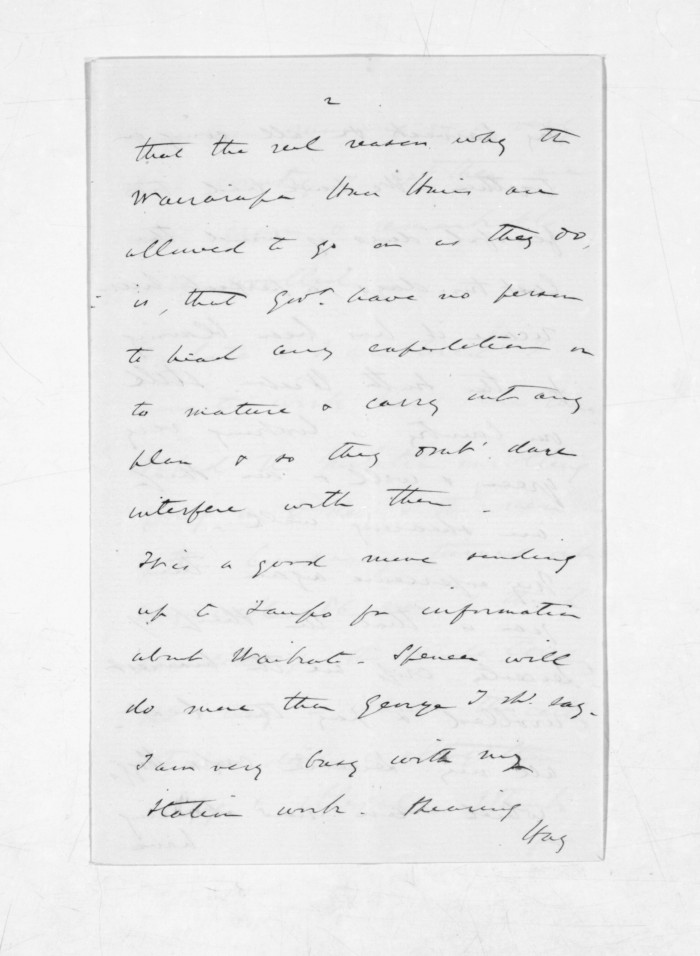 2
that the real reason why the
Wairarapa Hau Haus are
allowed to go on as they do,
is, that Govt. have no person
to head any expedition or
to mature & carry out any
plan & so they don't dare
interfere with them -
It is a good move sending
up to Taupo for information
about Waikato - Spencer will
do more than George I shd. say -
I am very busy with my
Station work - Shearing